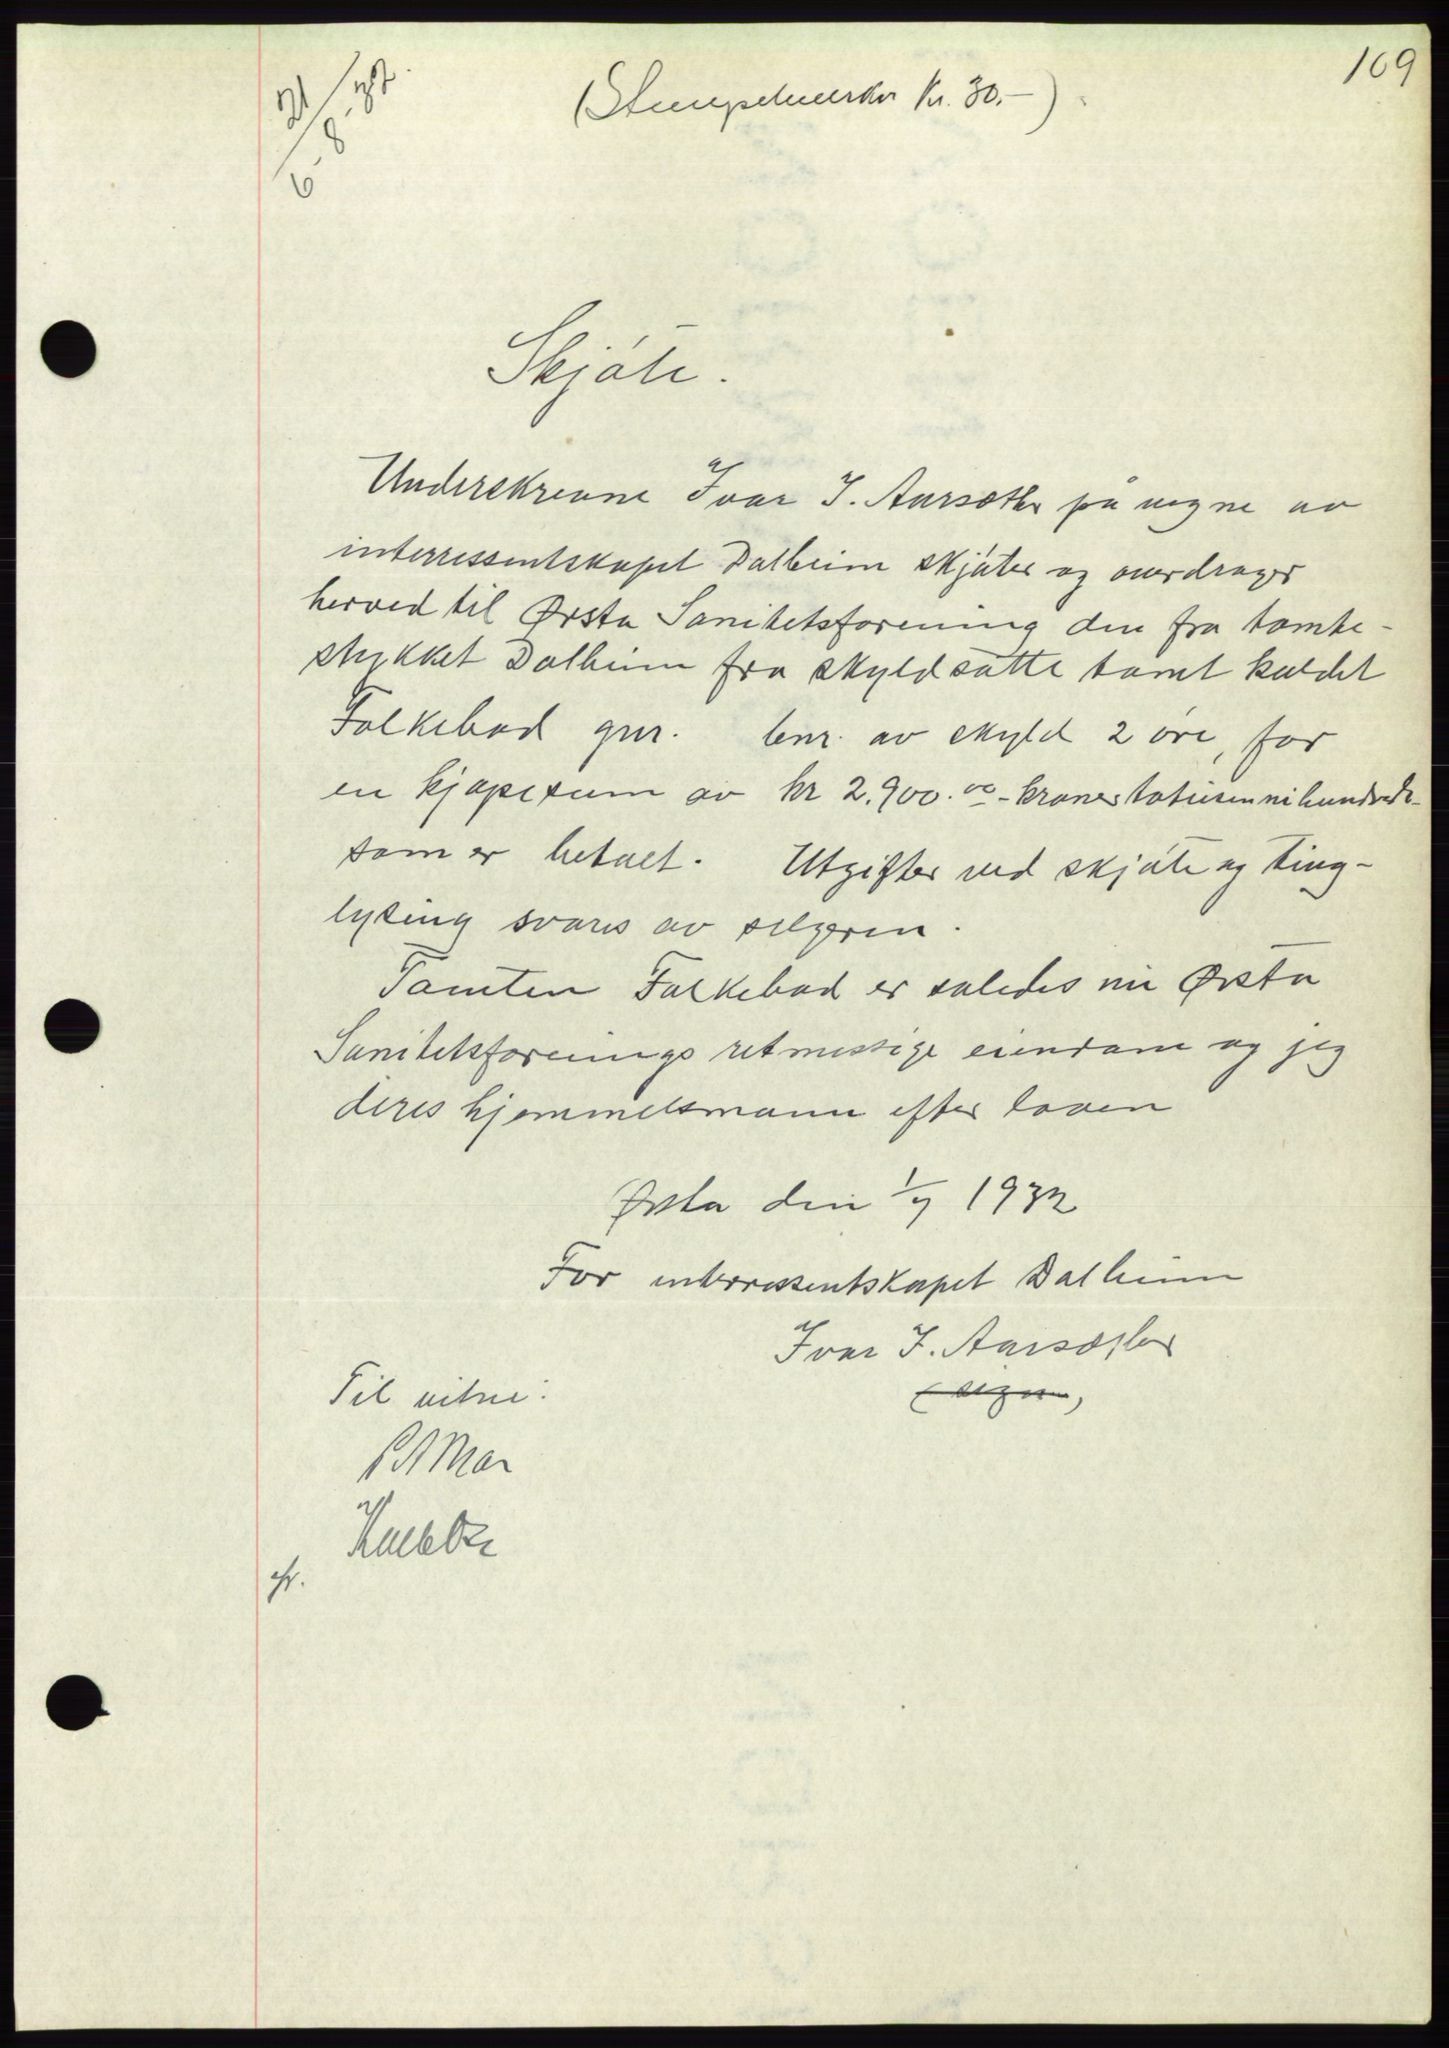 109
(Stempelmerker Kr. 30.-)
Skjøte.
Underskrevne Ivar J. Aarsæther på vegne av
interressentskapet Dalheim skjøter og overdrager
herved til Ørsta Sanitetsforening den fra tomte-
stykket Dalheim fra skyldsatte tomt kaldet
Folkebad gnr. bnr. av skyld 2 øre, for
en kjøpesum av kr 2.900.00 - kroner totusennihundrede -
som er betalt. Utgifter ved skjøte og ting-
lysing svares av selgeren.
Tomten Folkebad er således nu Ørsta
Sanitetsforenings retmessige eiendom og jeg
deres hjemmelsmann efter loven
Ørsta den 1/7 1932
For interressentskapet Dalheim
Ivar J. Aarsæther
(sign)
Til vitne: